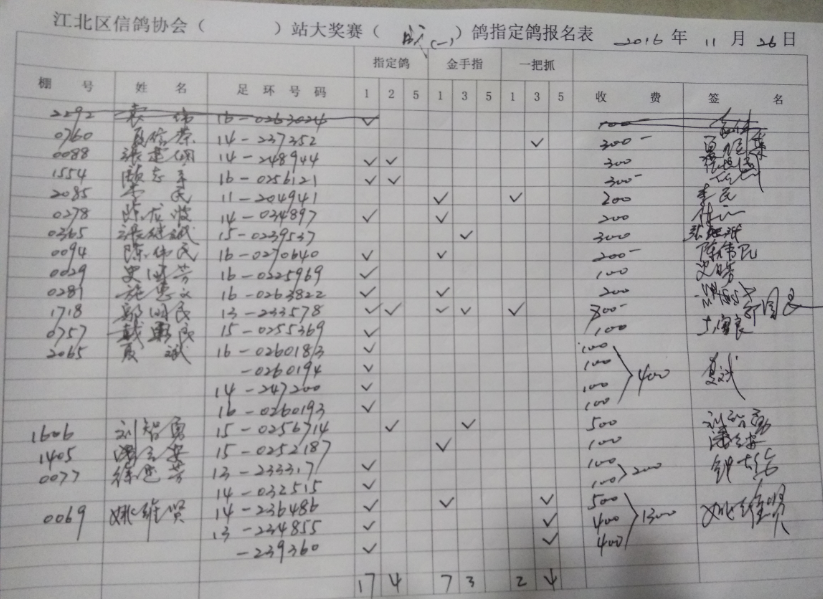 江北区信鸽协会（ ）站大奖赛（ 成(一) ）鸽指定鸽报名表 2016 年 11 月 26 日
指定鸽 金手指 一把抓
棚 号 姓 名 足 环 号 码 1 2 5 1 3 5 1 3 5 收 费 签 名
2292 16-0263024 ✓ 100
0760 14-237352 ✓ 300-
0088 14-248944 ✓ ✓ 300
1554 16-0256121 ✓ ✓ 300-
2085 李 民 11-204941 ✓ ✓ 200 李民
0278 14-034897 ✓ ✓ 200
0365 15-0239537 ✓ 300
0094 陈伟民 16-0270640 ✓ ✓ 200- 陈伟民
0029 史国芳 16-0225969 ✓ 100
0281 施惠文 16-0263822 ✓ ✓ 200
1718 郭国民 13-233578 ✓ ✓ ✓ ✓ ✓ 800-
0757 15-0255369 ✓ 100
2065 夏 斌 16-0260183 ✓ 100 400 夏斌
-0260194 ✓ 100
14-247200 ✓ 100
16-0260193 ✓ 100
1606 刘智勇 15-0256714 ✓ ✓ 500 刘智勇
1405 15-0252187 ✓ 100
0077 13-233317 ✓ 100 200
14-032515 ✓ 100
0069 姚维贤 14-236486 ✓ ✓ ✓ 500 1300 姚维贤
13-234855 ✓ ✓ 400
-239360 ✓ ✓ 400
17 4 7 3 2 4